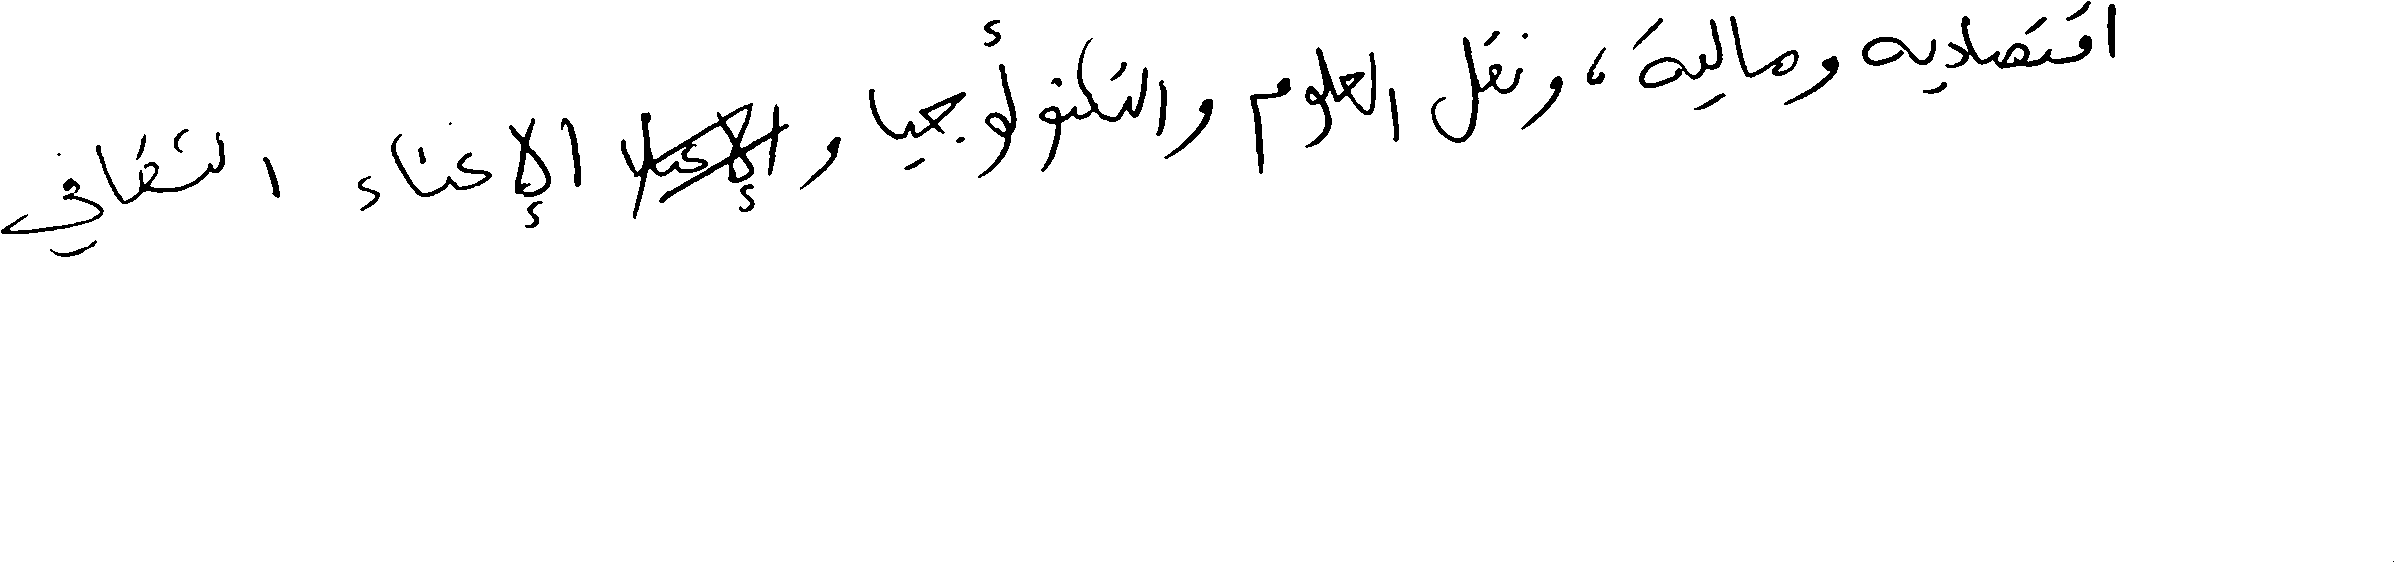 اقتصاديه ومالية، ونقل العلوم والتكنولوجيا و الإغناء الثقافي